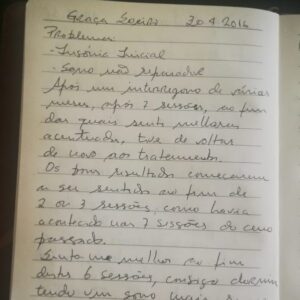 Graça Soeiro 20 4 2016
Problemas:
- Insónia Inicial
- Sono não reparador
Após um interregno de vários
meses, após 7 sessões, ao fim
das quais senti melhoras
acentuadas, tive de voltar
de novo aos tratamentos.
Os bons resultados começaram
a ser sentidos ao fim de
2 ou 3 sessões, como havia
acontecido nas 7 sessões do ano
passado.
Sinto me melhor ao fim
destas 6 sessões, consigo dormir
tendo um sono mais